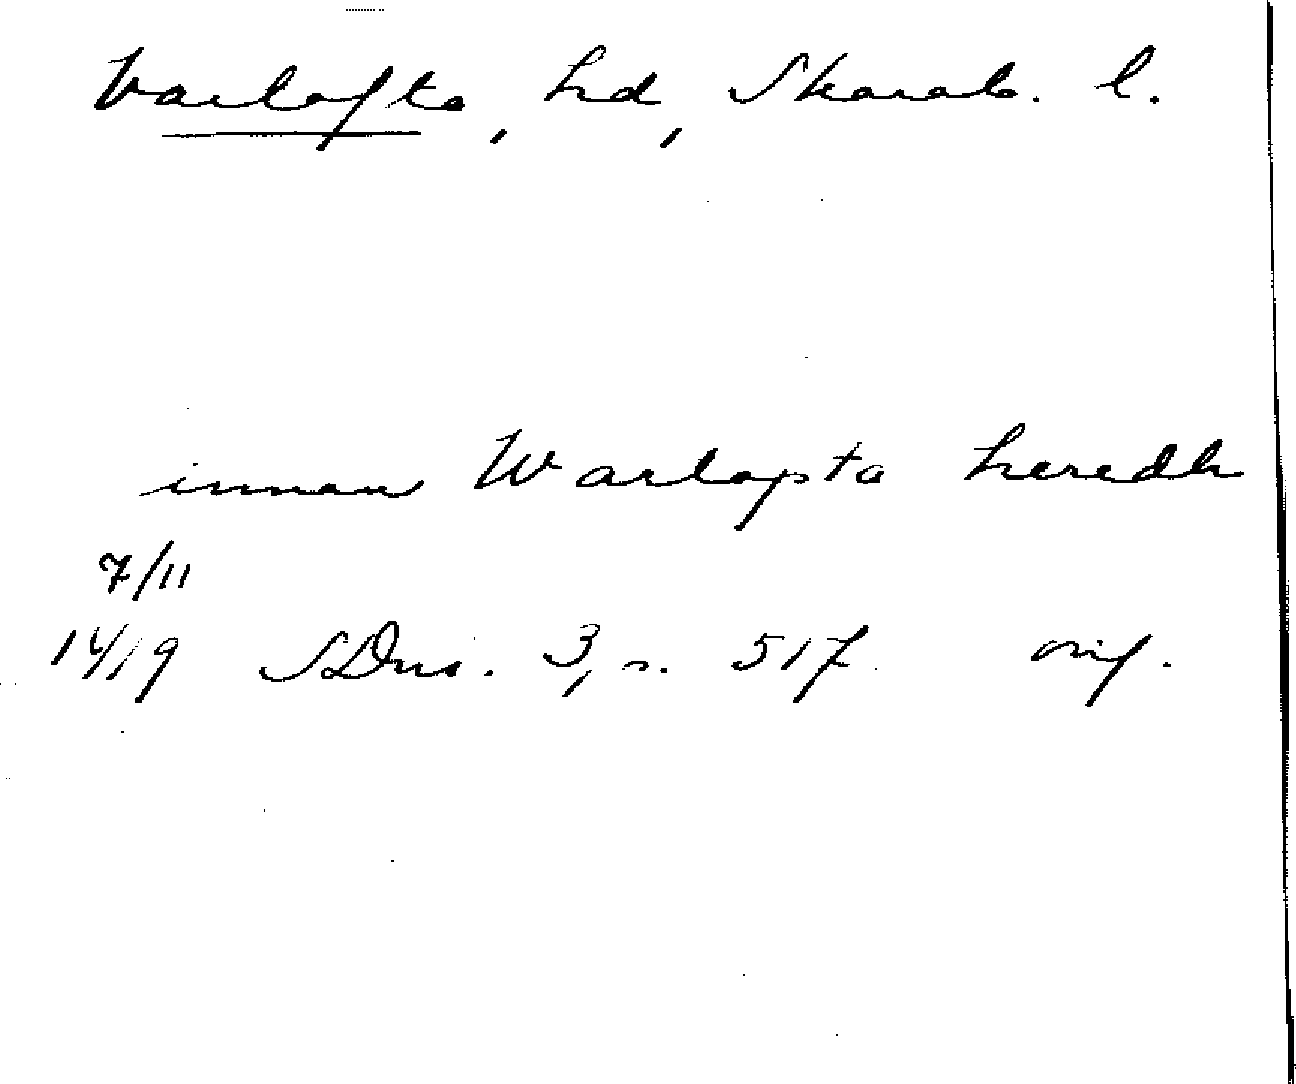 Vartofta, hd, Skarab. l.
innan Wartapta heredh
7/11
1419 SDns. 3, s. 517. orig.